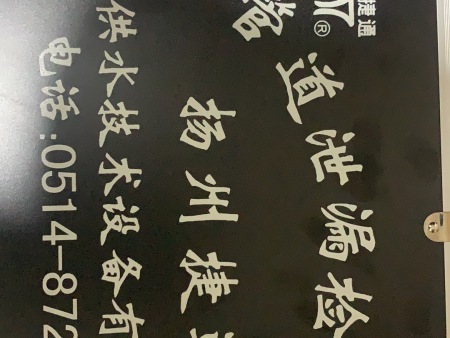 捷通
®
管道泄漏检
扬州捷
供水技术设备有
电话:0514-872